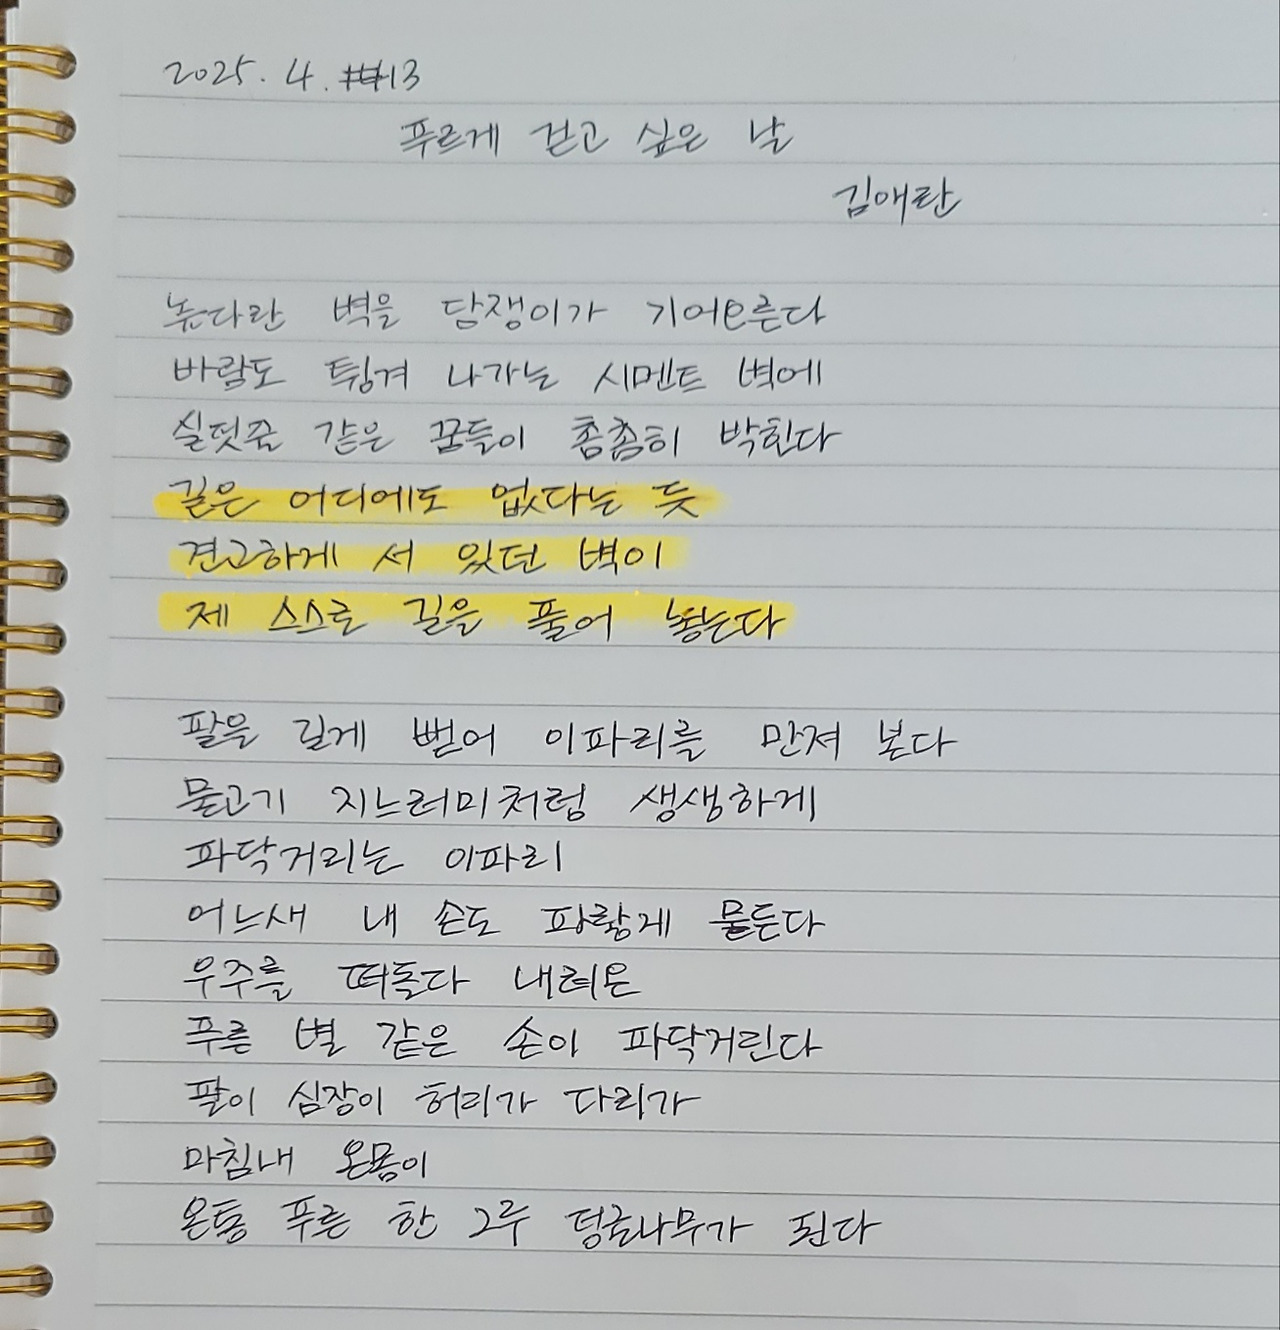 2025. 4. 13
푸르게 걷고 싶은 날
김애란
높다란 벽을 담쟁이가 기어오른다
바람도 튕겨 나가는 시멘트 벽에
실핏줄 같은 꿈들이 촘촘히 박힌다
길은 어디에도 없다는 듯
견고하게 서 있던 벽이
제 스스로 길을 풀어 놓는다
팔을 길게 뻗어 이파리를 만져 본다
물고기 지느러미처럼 생생하게
파닥거리는 이파리
어느새 내 손도 파랗게 물든다
우주를 떠돌다 내려온
푸른 별 같은 손이 파닥거린다
팔이 심장이 허리가 다리가
마침내 온몸이
온통 푸른 한 그루 덩굴나무가 된다